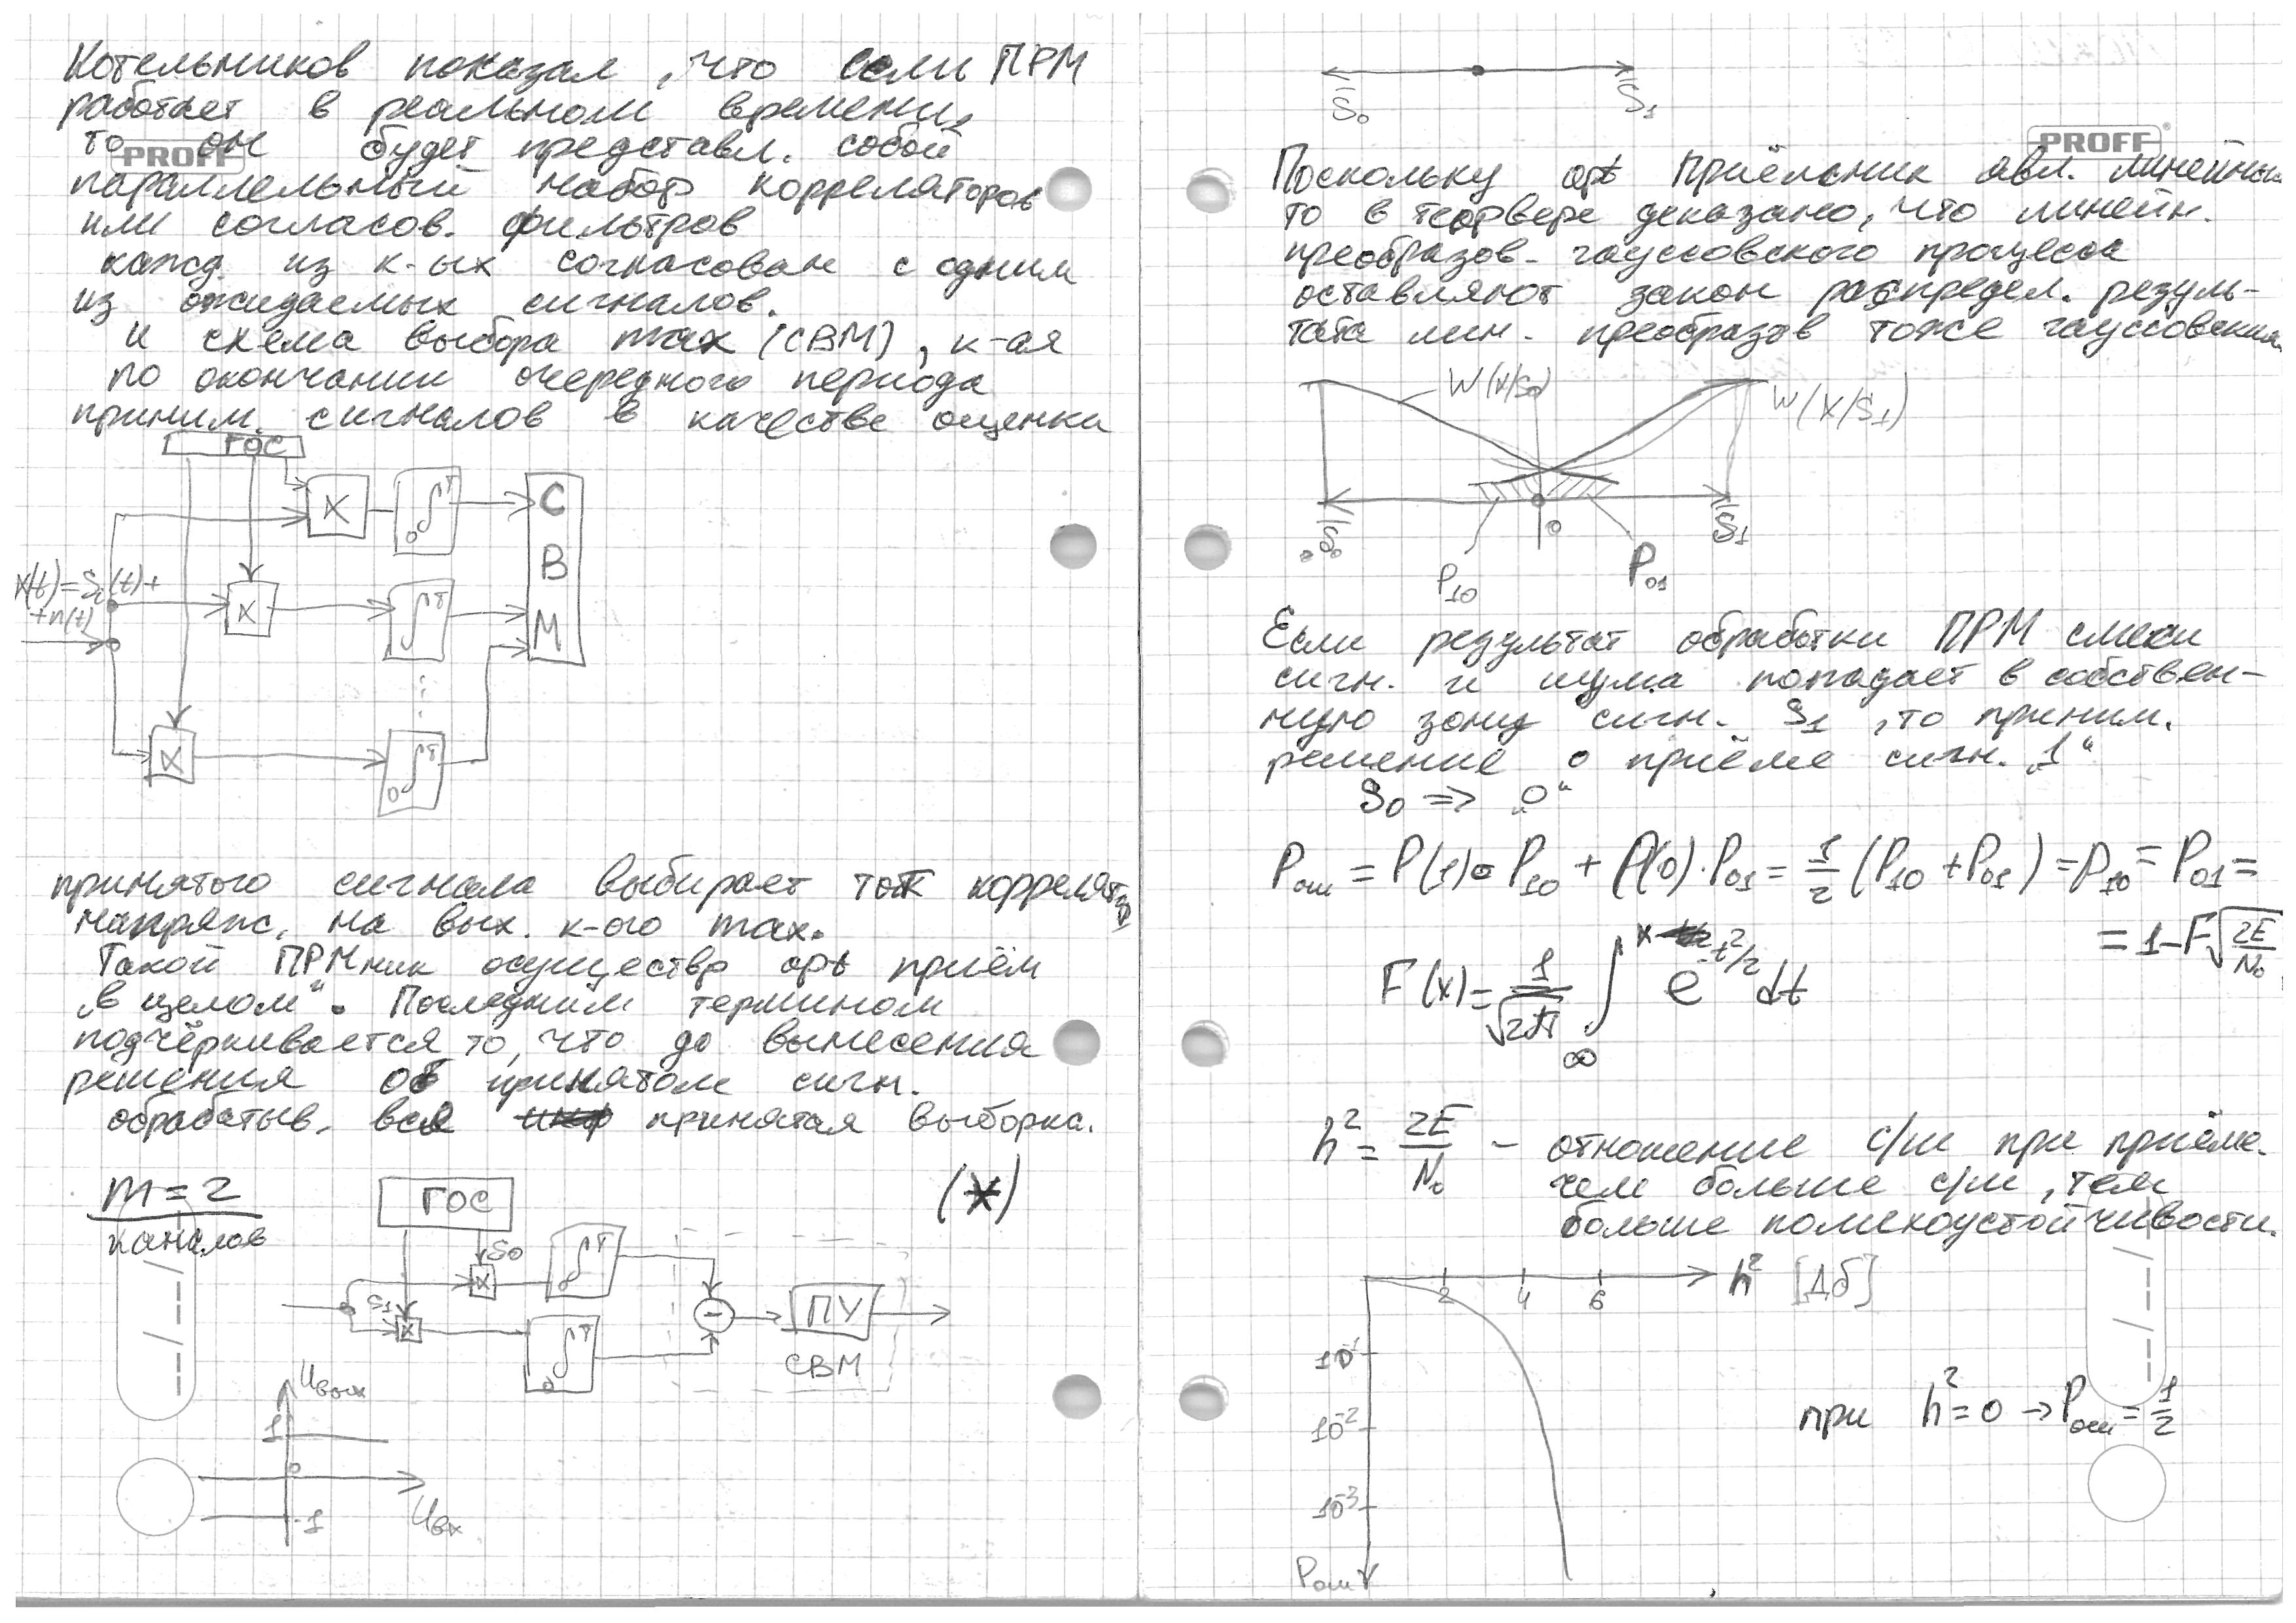 Котельников показал, что если ПРМ
работает в реальном времени,
то он будет представл. собой
PROFF
параллельный набор корреляторов
или согласов. фильтров
кажд. из к-ых согласован с одним
из ожидаемых сигналов.
и схема выбора max (СВМ), к-ая
по окончании очередного периода
приним. сигналов в качестве оценки
ГОС
X ∫ T 0 С
В
x(t)=Si(t)+
+n(t)
X ∫ T М
X ∫ T 0
принятого сигнала выбирает тот коррелятор
напряж. на вых. к-ого max.
Такой ПРМник осуществ opt приём
„в целом“. Последним термином
подчёркивается то, что до вынесения
решения об принятом сигн.
обрабатыв. вся принятая выборка.
m=2
каналов
(*)
ГОС
S0
X ∫ T 0
S1
X ∫ T 0
- ПУ
СВМ
Uвых
1
0
Uвх
-1
S0 S1
PROFF
Поскольку opt приёмник явл. линейным
то в теорвере доказано, что линейн.
преобразов. гауссовского процесса
оставляют закон распредел. резуль-
тата лин. преобразов тоже гауссовским.
W(x/S0) W(x/S1)
S0 0 S1
P10 P01
Если результат обработки ПРМ смеси
сигн. и шума попадает в собствен-
ную зону сигн. S1, то приним.
решение о приёме сигн. „1“
S0 => „0“
Pош = P(1)·P10 + P(0)·P01 = 1/2 (P10 + P01) = P10 = P01 =
= 1-F√(2E/N0)
F(x) = 1/√2π ∫ x ∞ e^(-t²/2) dt
h² = 2E/N0 - отношение с/ш при приёме.
чем больше с/ш, тем
больше помехоустойчивости.
2 4 6 h² [Дб]
10⁻¹
10⁻²
при h²=0 → Pош = 1/2
10⁻³
Pош